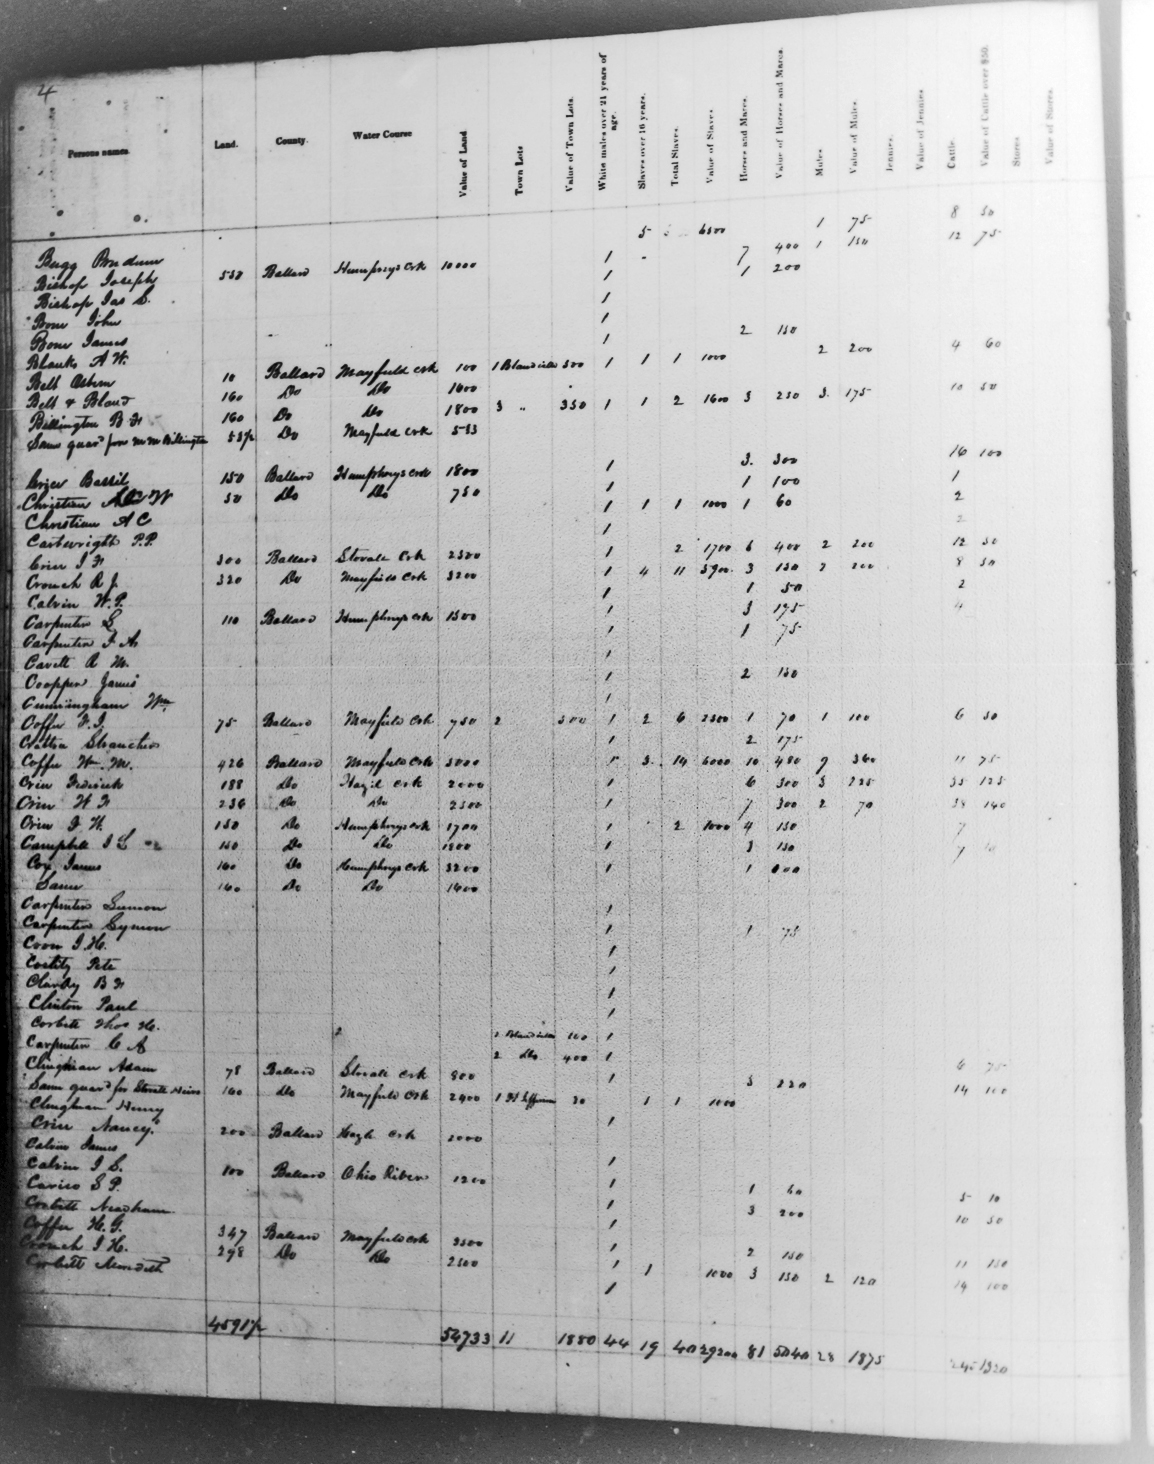 4
Persons names. Land. County. Water Course Value of Land Town Lots Value of Town Lots. White males over 21 years of age. Slaves over 16 years. Total Slaves. Value of Slaves Horses and Mares. Value of Horses and Mares. Mules Value of Mules. Jennies. Value of Jennies Cattle. Value of Cattle over $50. Stores Value of Stores.
5 6500 1 75 8 50
1 7 400 1 150 12 75
Bishop Joseph 530 Ballard Humphreys Crk 10000 1 1 200
Bishop Jas S. 1
Bone John 1
Bone James 1 2 150
Blanks A W. 2 200 4 60
Belt Osborn 10 Ballard Mayfield Crk 100 1 Blandville 500 1 1 1 1000
Belt & Bland 160 Do Do 1600 10 50
Billington B F 160 Do Do 1800 3 " 350 1 1 2 1600 3 250 3 175
Same guard for M M Billington 53½ Do Mayfield Crk 533
Crice Bassil 150 Ballard Humphreys Crk 1800 1 3 300 16 100
Christian W 50 Do Do 750 1 1 100 1
Christian A C 1 1 1 1000 1 60 2
Cartwright P.P. 1 2
Crice J F 300 Ballard Stovall Crk 2500 1 2 1700 6 400 2 200 12 50
Crouch R J. 320 Do Mayfield Crk 3200 1 4 11 5900 3 150 2 200 8 50
Calvin W.P. 1 1 50 2
Carpenter S 110 Ballard Humphreys Crk 1500 3 175 4
Carpenter J A 1 1 75
Cavett R M. 1
Coopper James 1 2 150
Cunningham Wm. 1
Coffee F.J. 75 Ballard Mayfield Crk 750 2 500 1 2 6 2500 1 70 1 100 6 50
1 2 175
Coffee Wm. M. 426 Ballard Mayfield Crk 5000 1 3 14 6000 10 480 9 360 11 75
Crice Frederick 188 Do Hazil Crk 2000 1 6 300 3 225 35 125
Crice W F 236 Do Do 2500 1 7 300 2 70 38 140
Crice J W. 150 Do Humphreys Crk 1700 1 2 1000 4 150 7
Campbell J S 150 Do Do 1500 1 3 150 7
Cox James 160 Do Humphreys Crk 3200 1 1
Same 160 Do Do 1600
Carpenter Simeon 1
Carpenter Symon 1 1 75
Coon J. H. 1
Costily Pete 1
B F 1
Clinton Paul 1
Corbett Thos H. 1 Blandville 100 1
Carpenter C A 2 Do 400 1
Clinghian Adam 78 Ballard Stovall Crk 800 1 3 220 6 75
Same guard for Stovall Heirs 160 Do Mayfield Crk 2400 1 50 1 1 1000 14 100
Clinghian Henry 1
Crice Nancy 200 Ballard Hazle Crk 2000
Calvin James 1
Calvin J S. 100 Ballard Ohio River 1200 1
Carico S P. 1 1 60 5 10
Corbett Needham 1 3 200 10 50
Coffee H. G. 347 Ballard Mayfield Crk 3500 1 2 150
Crouch J. H. 298 Do Do 2500 1 1 1000 3 150 2 120 11 150
Corbett Meredith 1 14 100
4591½ 54733 11 1880 44 19 40 29200 81 5040 28 1875 245 1320